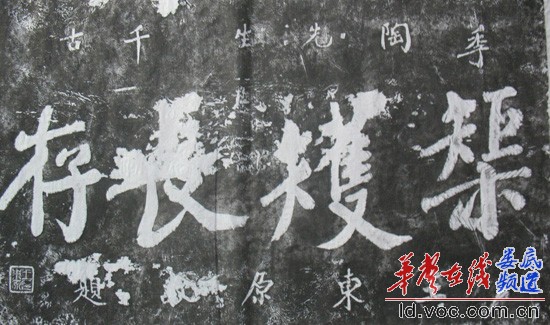 季陶先生千古
榘矱長存
東原題
华声在线 娄底频道
ld.voc.com.cn